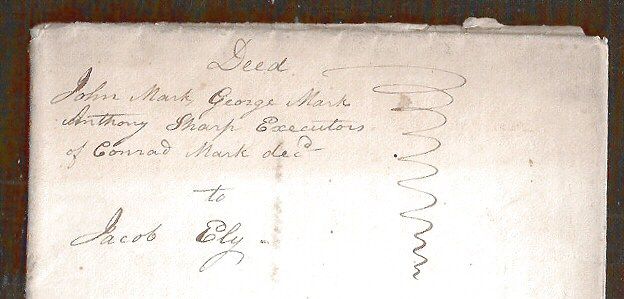 Deed
John Mark, George Mark
Anthony Sharp Executors
of Conrad Mark decd
to
Jacob Ely